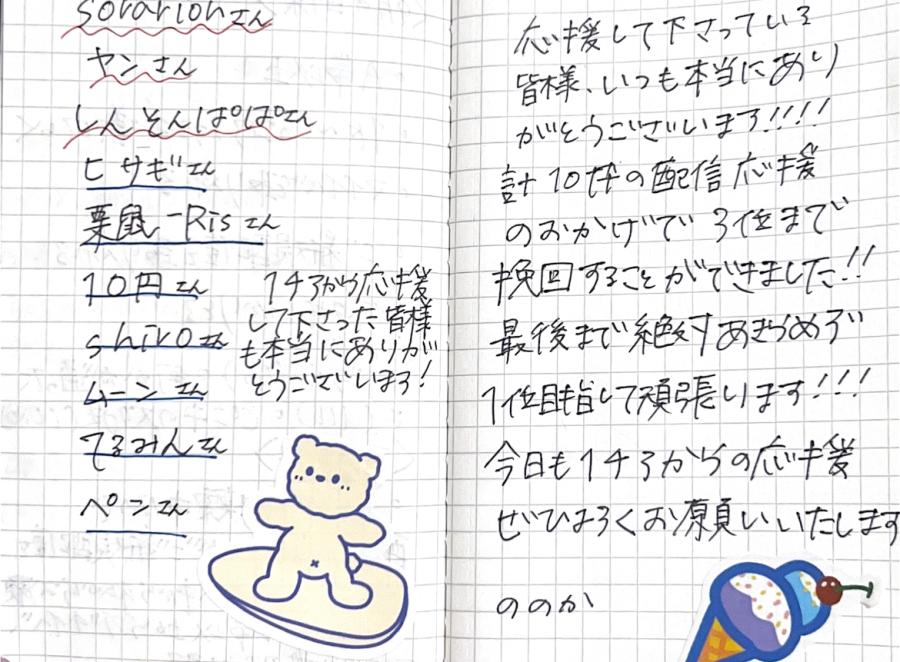 sorarionさん
ヤンさん
しんそんぱぱさん
ヒサギさん
栗鼠-Risさん
10円さん
shiroさん
ムーンさん
てるみんさん
ペンさん
1チアから応援
して下さった皆様
も本当にありが
とうございます!
応援して下さっている
皆様、いつも本当にあり
がとうございます!!!!
計10枠の配信応援
のおかげで3位まで
挽回することができました!!
最後まで絶対あきらめず
1位目指して頑張ります!!!
今日も1チアからの応援
ぜひよろしくお願いいたします
ののか